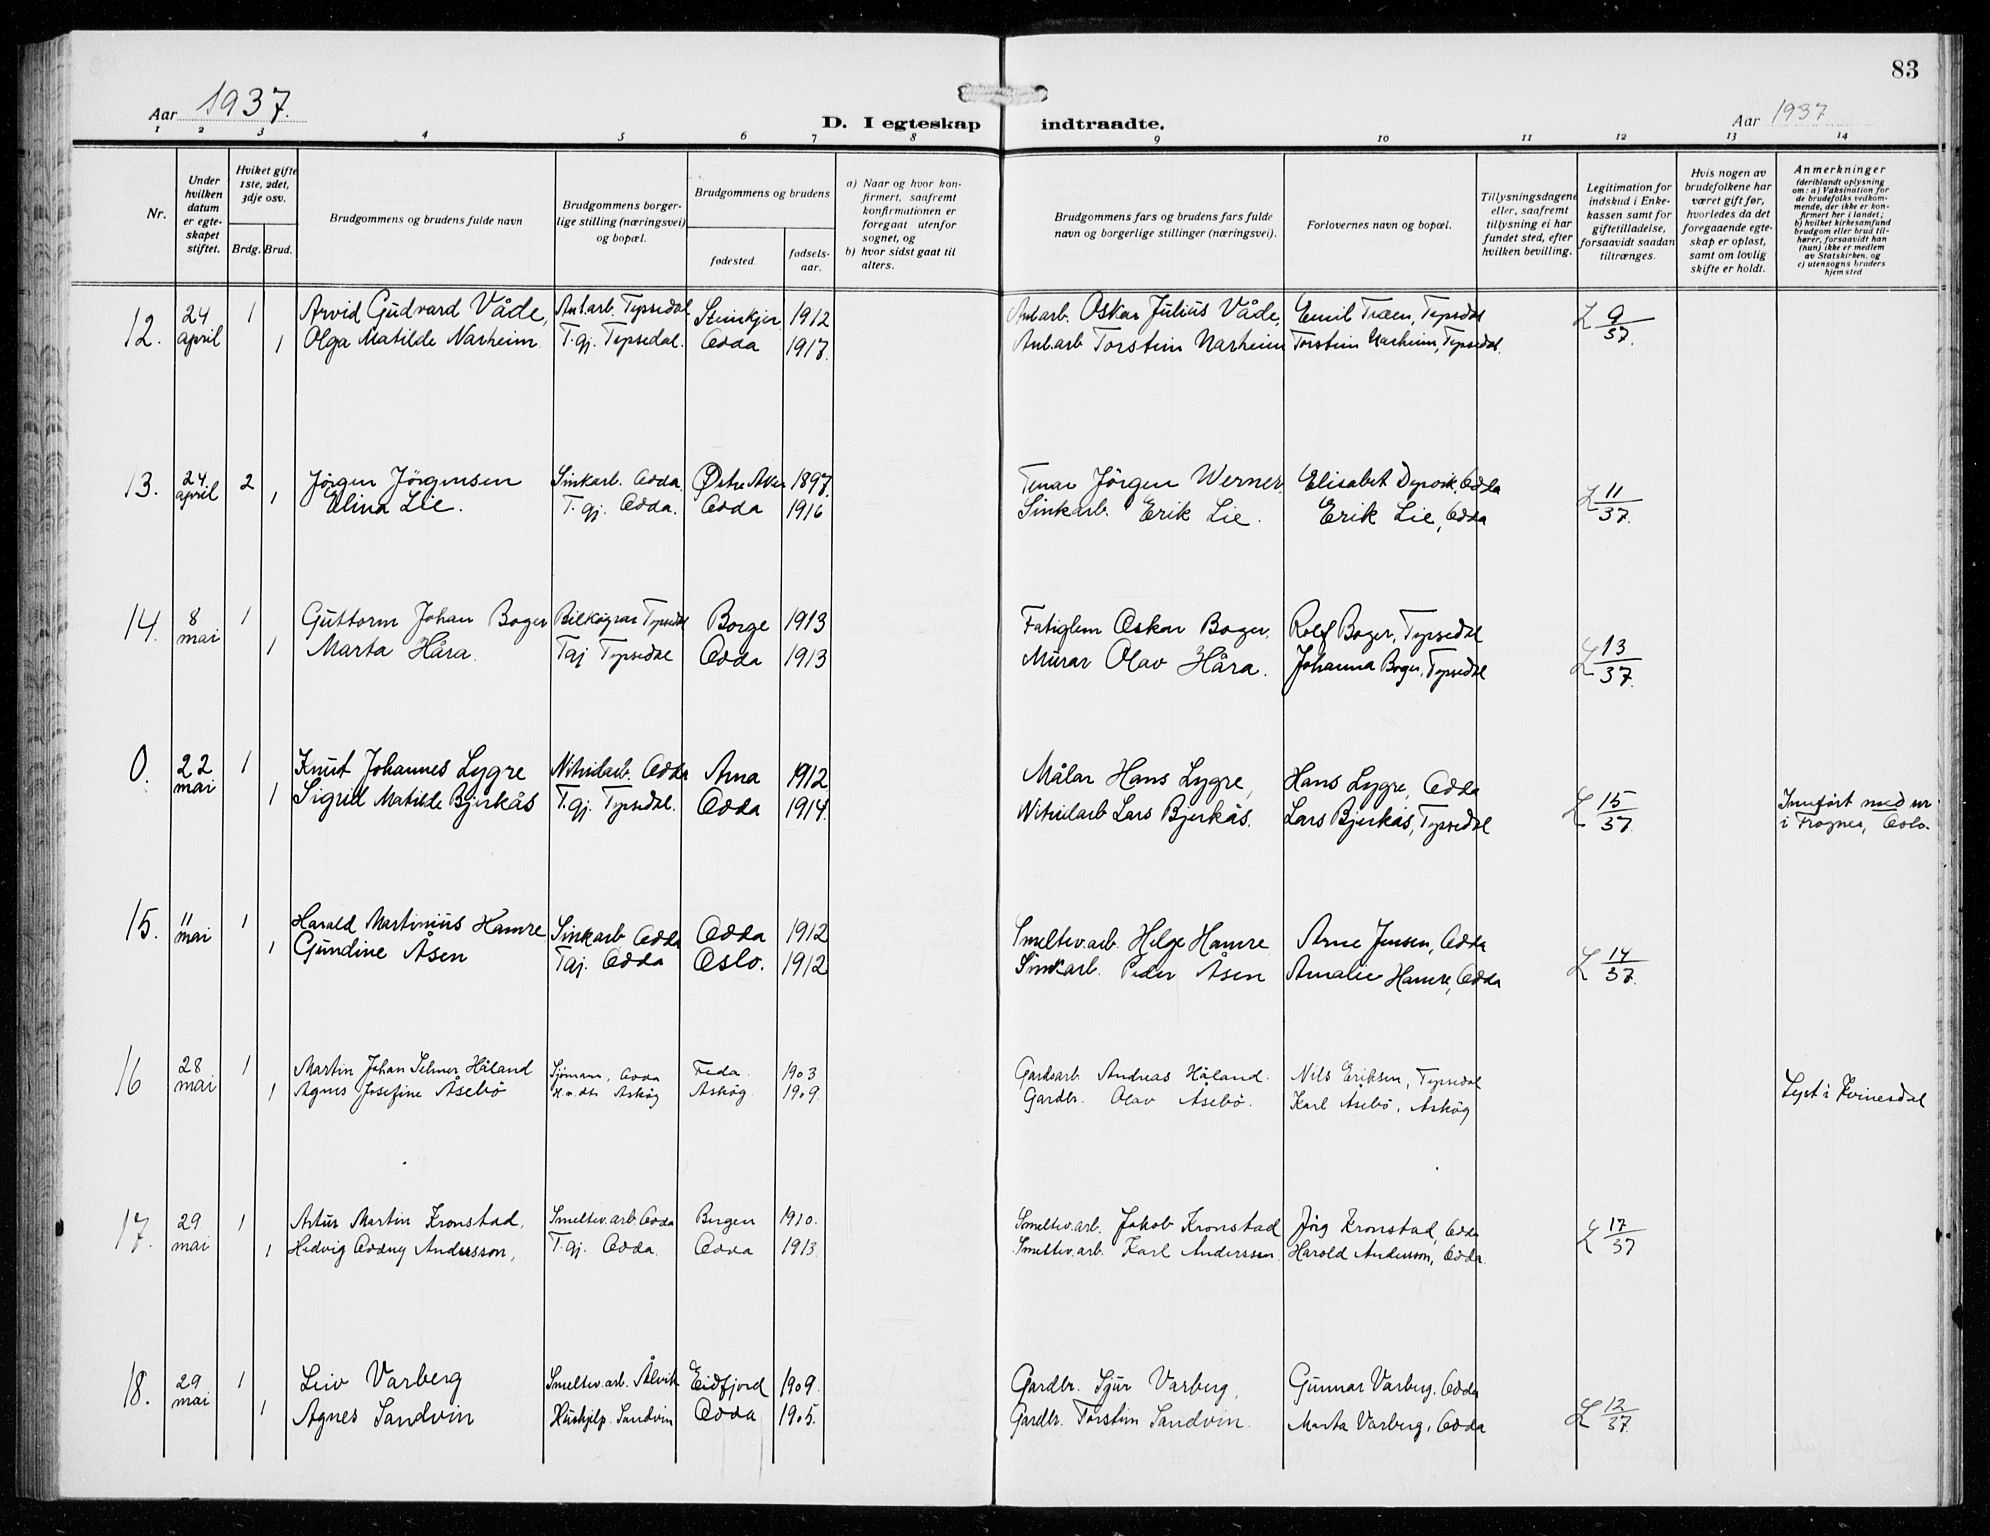 83
Aar 1937.
D. I egteskap indtraadte.
Aar 1937
1 2 3 4 5 6 7 8 9 10 11 12 13 14
Nr.
Under hvilken datum er egteskapet stiftet.
Hviket gifte 1ste, 2det, 3dje osv.
Brdg. Brud.
Brudgommens og brudens fulde navn
Brudgommens borgerlige stilling (næringsvei) og bopæl.
Brudgommens og brudens
fødested. fødselsaar.
a) Naar og hvor konfirmert, saafremt konfirmationen er foregaat utenfor sognet, og
b) hvor sidst gaat til alters.
Brudgommens fars og brudens fars fulde navn og borgerlige stillinger (næringsvei).
Forlovernes navn og bopæl.
Tillysningsdagene eller, saafremt tillysning ei har fundet sted, efter hvilken bevilling.
Legitimation for indskud i Enkekassen samt for giftetilladelse, forsaavidt saadan tiltrænges.
Hvis nogen av brudefolkene har været gift før, hvorledes da det foregaaende egteskap er opløst, samt om lovlig skifte er holdt.
Anmerkninger
(deriblandt oplysning om: a) Vaksination for de brudefolks vedkommende, der ikke er konfirmert her i landet; b) hvilket kirkesamfund brudgom eller brud tilhører, forsaavidt han (hun) ikke er medlem av Statskirken, og c) utensogns bruders hjemsted
12. 24 april 1 Arvid Gudvard Våde, Anl.arb. Tyssedal Steinkjer 1912 Anl.arb. Oskar Julius Våde, Emil Træen, Tyssedal L 9/37.
1 Olga Matilde Narheim T.gj. Tyssedal. Odda 1917. Anl.arb Torstein Narheim Torstein Narheim, Tyssedal.
13. 24 april 2 Jørgen Jörgensen Sinkarb. Odda. Østre Aker 1897. Jörgen Werner. Elisabet Odda L 11/37.
1 Elina Lie. T.gj. Odda. Odda 1916 Sinkarb. Erik Lie. Erik Lie, Odda
14. 8 mai 1 Guttorm Johan Boger Tyssedal Borge 1913 Oskar Boger. Rolf Boger, Tyssedal L 13/37.
1 Marta Håra. Tgj Tyssedal Odda 1913 Murar Olav Håra. Johanna Boger, Tyssedal
0. 22 mai 1 Knut Johannes Lygre Nitridarb. Odda Arna 1912 Målar Hans Lygre, Hans Lygre, Odda L 15/37. Innført med nr.
1 Sigrid Matilde Bjerkås T.gj. Tyssedal. Odda 1914. Nitridarb Lars Bjerkås. Lars Bjerkås, Tyssedal i Frogner, Oslo.
15. 11 mai 1 Harald Martinius Hamre Sinkarb Odda Odda 1912 Smeltev.arb. Helge Hamre Arne Jensen, Odda L 14/37.
1 Gundine Åsen Tgj. Odda Oslo. 1912 Sinkarb. Peder Åsen Amalie Hamre, Odda
16 28 mai 1 Martin Johan Selmer Håland Sjömann, Odda Feda. 1903 Gardsarb. Andreas Håland. Nils Eriksen, Tyssedal
1 Agnes Josefine Åsebö Askög Askög. 1909. Gardbr. Olav Åsebö. Karl Åsebö, Askög Lyst i Kvinesdal
17. 29 mai 1 Artur Martin Kronstad, Smeltev.arb Odda Bergen 1910. Smeltev.arb. Jakob Kronstad Jörg Kronstad, Odda L 17/37
1 Hedvig Oddny Andersson, T.gj. Odda. Odda 1913. Smeltev.arb. Karl Anderssen. Harald Andersson, Odda.
18. 29 mai 1 Leiv Varberg Smeltev.arb. Ålvik Eidfjord 1909. Gardbr. Sjur Varberg, Gunnar Varberg, Odda L 12/37.
1 Agnes Sandvin Hushjelp. Sandvin Odda 1905. Gardbr. Torstein Sandvin. Marta Varberg, Odda